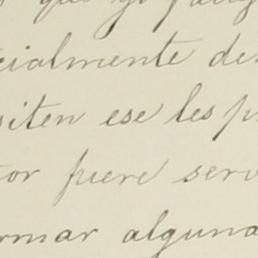 que yo
cialmente de
siten ese les p
tor fuere serv
ormar alguna